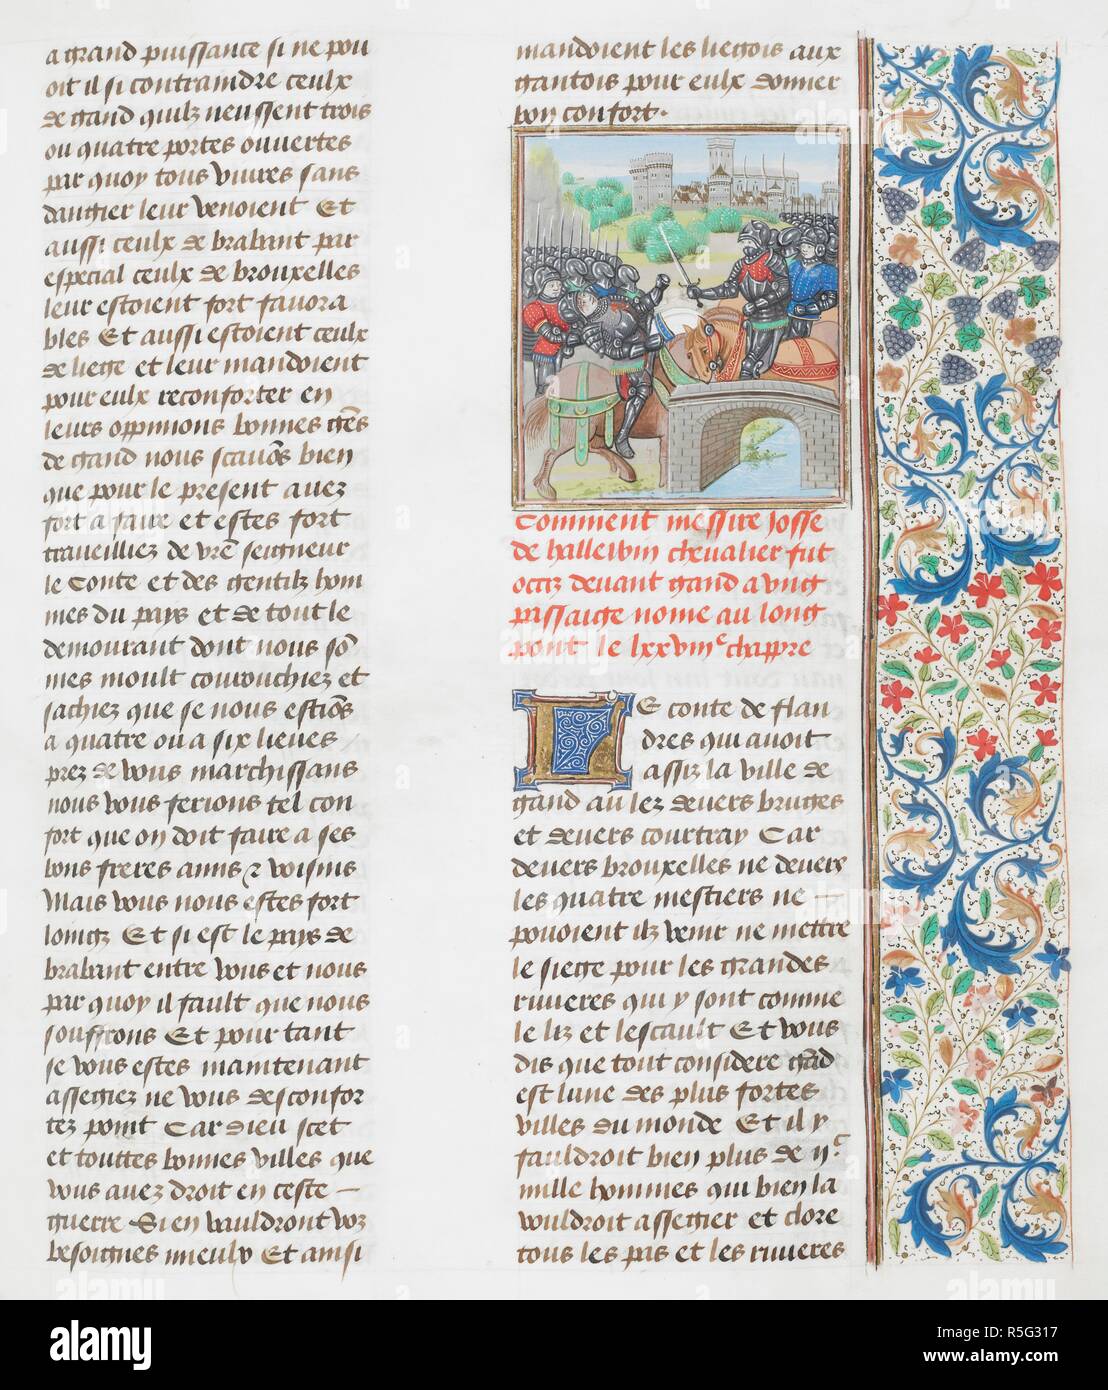 a grand puissance si ne pou
oit il si contraindre ceulx
de gand quilz neussent trois
ou quatre portes ouvertes
par quoy tous vivres sans
dangier leur venoient Et
aussi ceulx de brabant par
especial ceulx de brouxelles
leur estoient fort favora
bles Et aussi estoient ceulx
de liege et leur mandoient
pour eulx reconforter en
leurs oppinions bonnes gẽs
de gand nous scavõs bien
que pour le present avez
fort a faire et estes fort
traveilliez de vr̃e seigneur
le Conte et des gentilz hom
mes du pays et de tout le
demourant dont nous sõ
mes moult courouchiez et
sachiez que se nous estiõs
a quatre ou a six lieues
prez de vous marchissans
nous vous ferions tel con
fort que on doit faire a ses
bons freres amis ⁊ voisins
Mais vous nous estes fort
loingz Et si est le pays de
brabant entre vous et nous
par quoy il fault que nous
souffrons Et pour tant
se vous estes maintenant
assegiez ne vous desconfor
tez point Car dieu scet
et touttes bonnes villes que
vous avez droit en ceste
guerre Si en vauldront voz
besoignes mieulx Et ainsi
mandoient les liegois aux
gantois pour eulx donner
bon confort.
Comment messire Josse
de hallewin chevalier fut
occiz devant gand a ung
passaige nome au long
pont le lxxviii<sup>e</sup> chappre
LE conte de flan
dres qui avoit
assiz la ville de
gand au lez devers bruges
et devers courtray Car
devers brouxelles ne devers
les quatre mestiers ne
pouoient ilz venir ne mettre
le siege pour les grandes
rivieres qui y sont comme
le liz et lescault Et vous
dis que tout considere gãd
est lune des plus fortes
villes du monde Et il y
fauldroit bien plus de ii<sup>c</sup>
mille hommes qui bien la
vuldroit assegier et clore
tous les pas et les rivieres
alamy
Image ID: R5G317
www.alamy.com